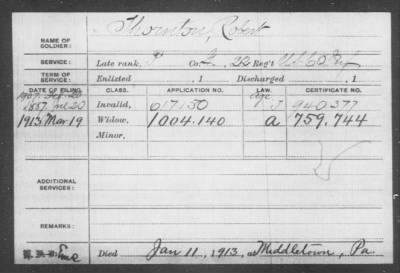 Thornton, Robert
NAME OF SOLDIER:
SERVICE: Late rank, Pt Co. G, 22 Reg't U.S.C.D. Inf
TERM OF SERVICE: Enlisted , 1 Discharged , 1
DATE OF FILING. CLASS. APPLICATION NO. LAW. CERTIFICATE NO.
1887 Jul 20 Invalid, 617.150 J 940377
1913 Mar 19 Widow, 1004.140 a 759.744
Minor,
ADDITIONAL SERVICES:
REMARKS:
Died Jan 11, 1913, at Middletown, Pa.